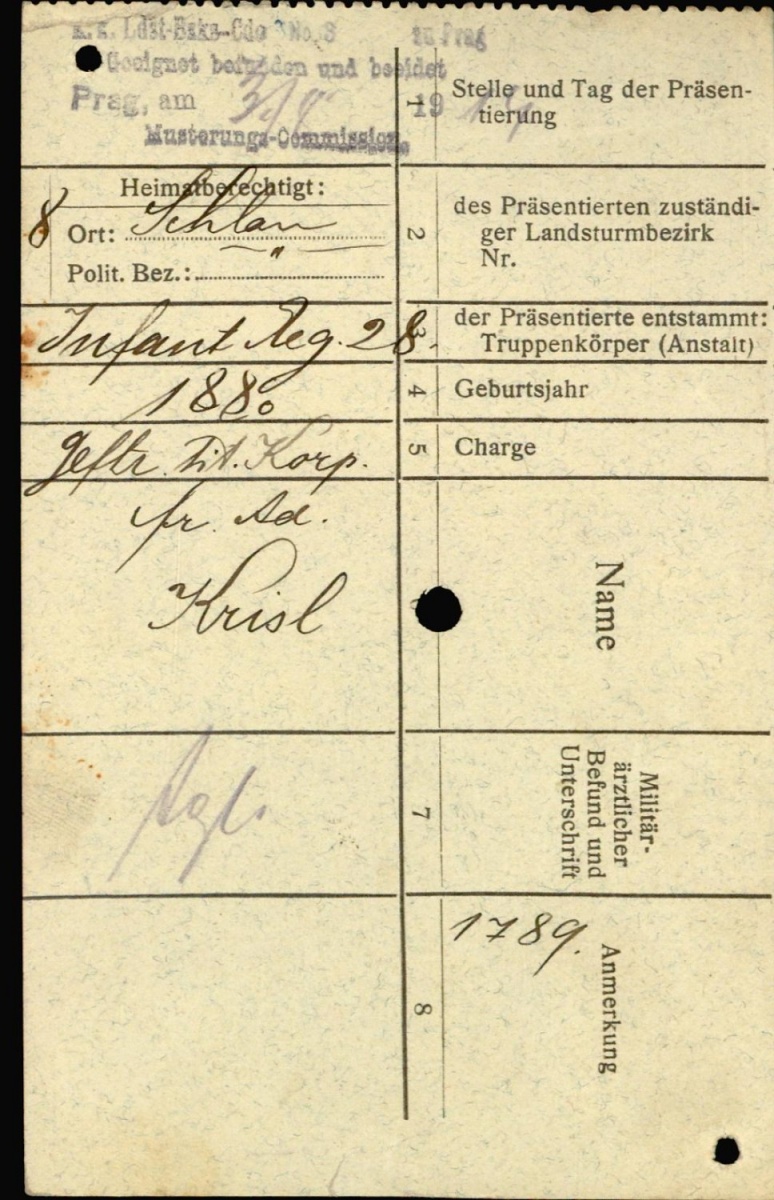 k. k. Ldst-Bzks-Cdo No. 8 zu Prag
Geeignet befunden und beeidet
Prag, am 3/8 19 14
Musterungs-Commission
1 Stelle und Tag der Präsen-
tierung
Heimatberechtigt:
8 Ort: Schlan
Polit. Bez.: — " —
2 des Präsentierten zuständi-
ger Landsturmbezirk
Nr.
Infant Reg. 28.
der Präsentierte entstammt:
Truppenkörper (Anstalt)
1880
4 Geburtsjahr
Geftr. tit. Korp.
5 Charge
Ad.
Krisl
Name
7 Militär-
ärztlicher
Befund und
Unterschrift
1789.
8 Anmerkung